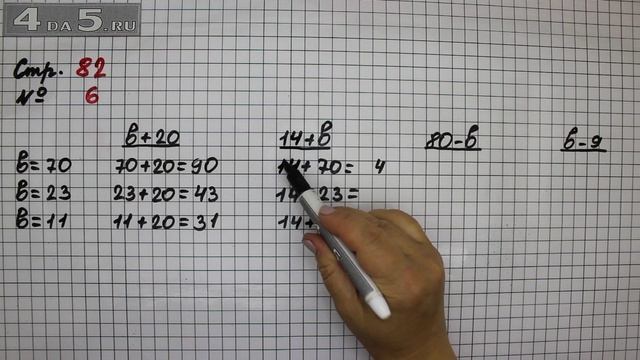 4 DA 5.RU
Стр. 82
№ 6
в+20 14+в 80-в в-9
в=70 70+20=90 14+70= 4
в=23 23+20=43 14+23=
в=11 11+20=31 14+